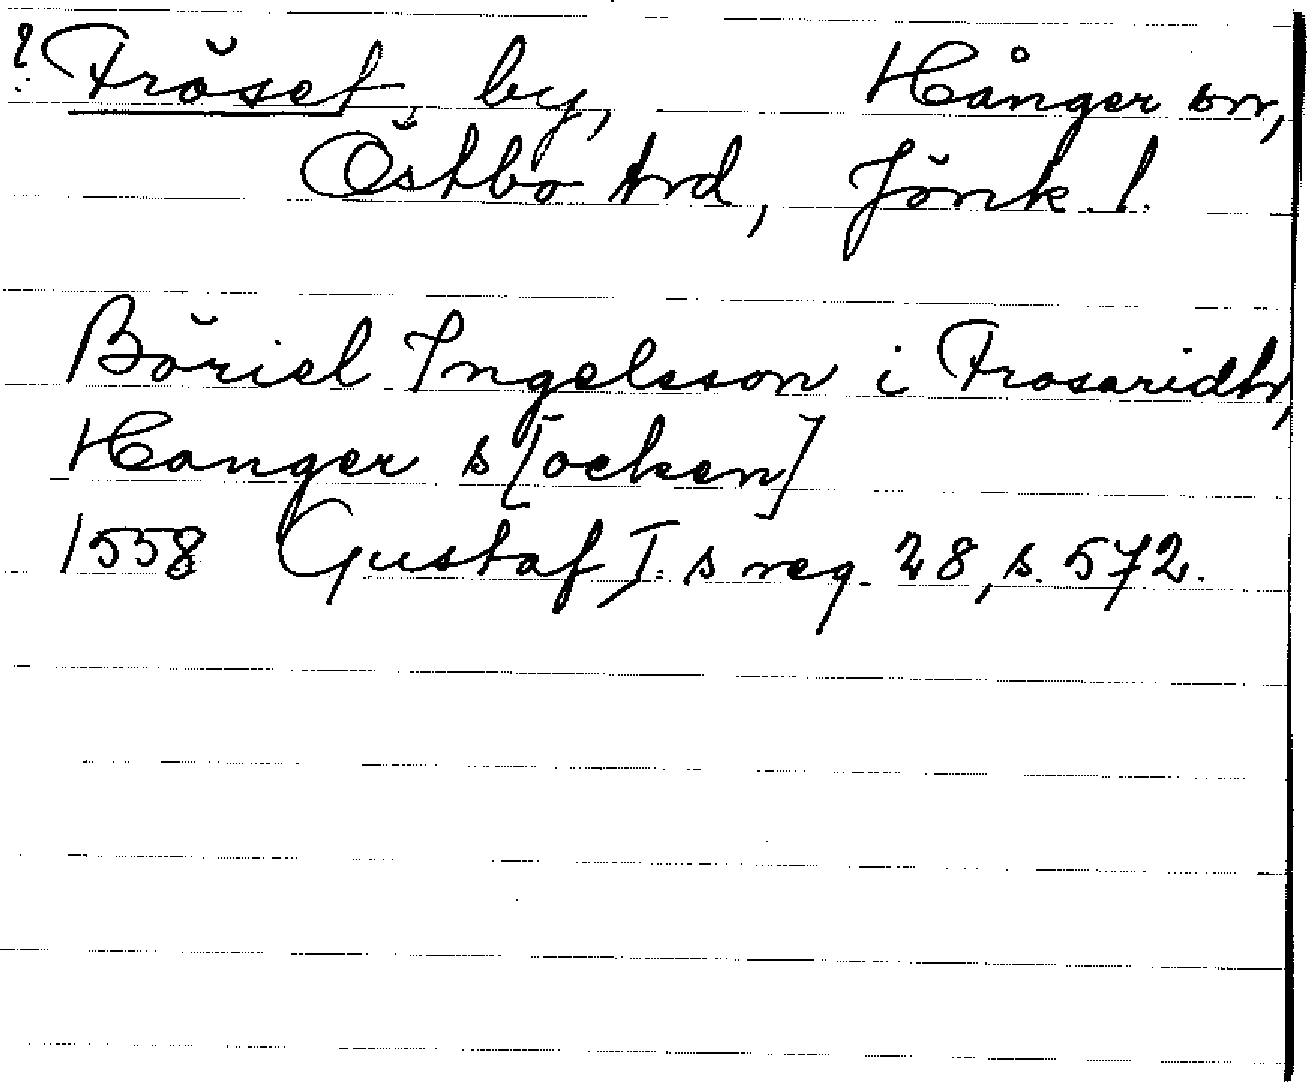 ? Fröset by, Hånger sn,
Östbo hrd, Jönk. l.
Böriel Ingelsson i Frosaridh,
Hanger s[ocken]
1558 Gustaf I.s reg. 28, s. 572.